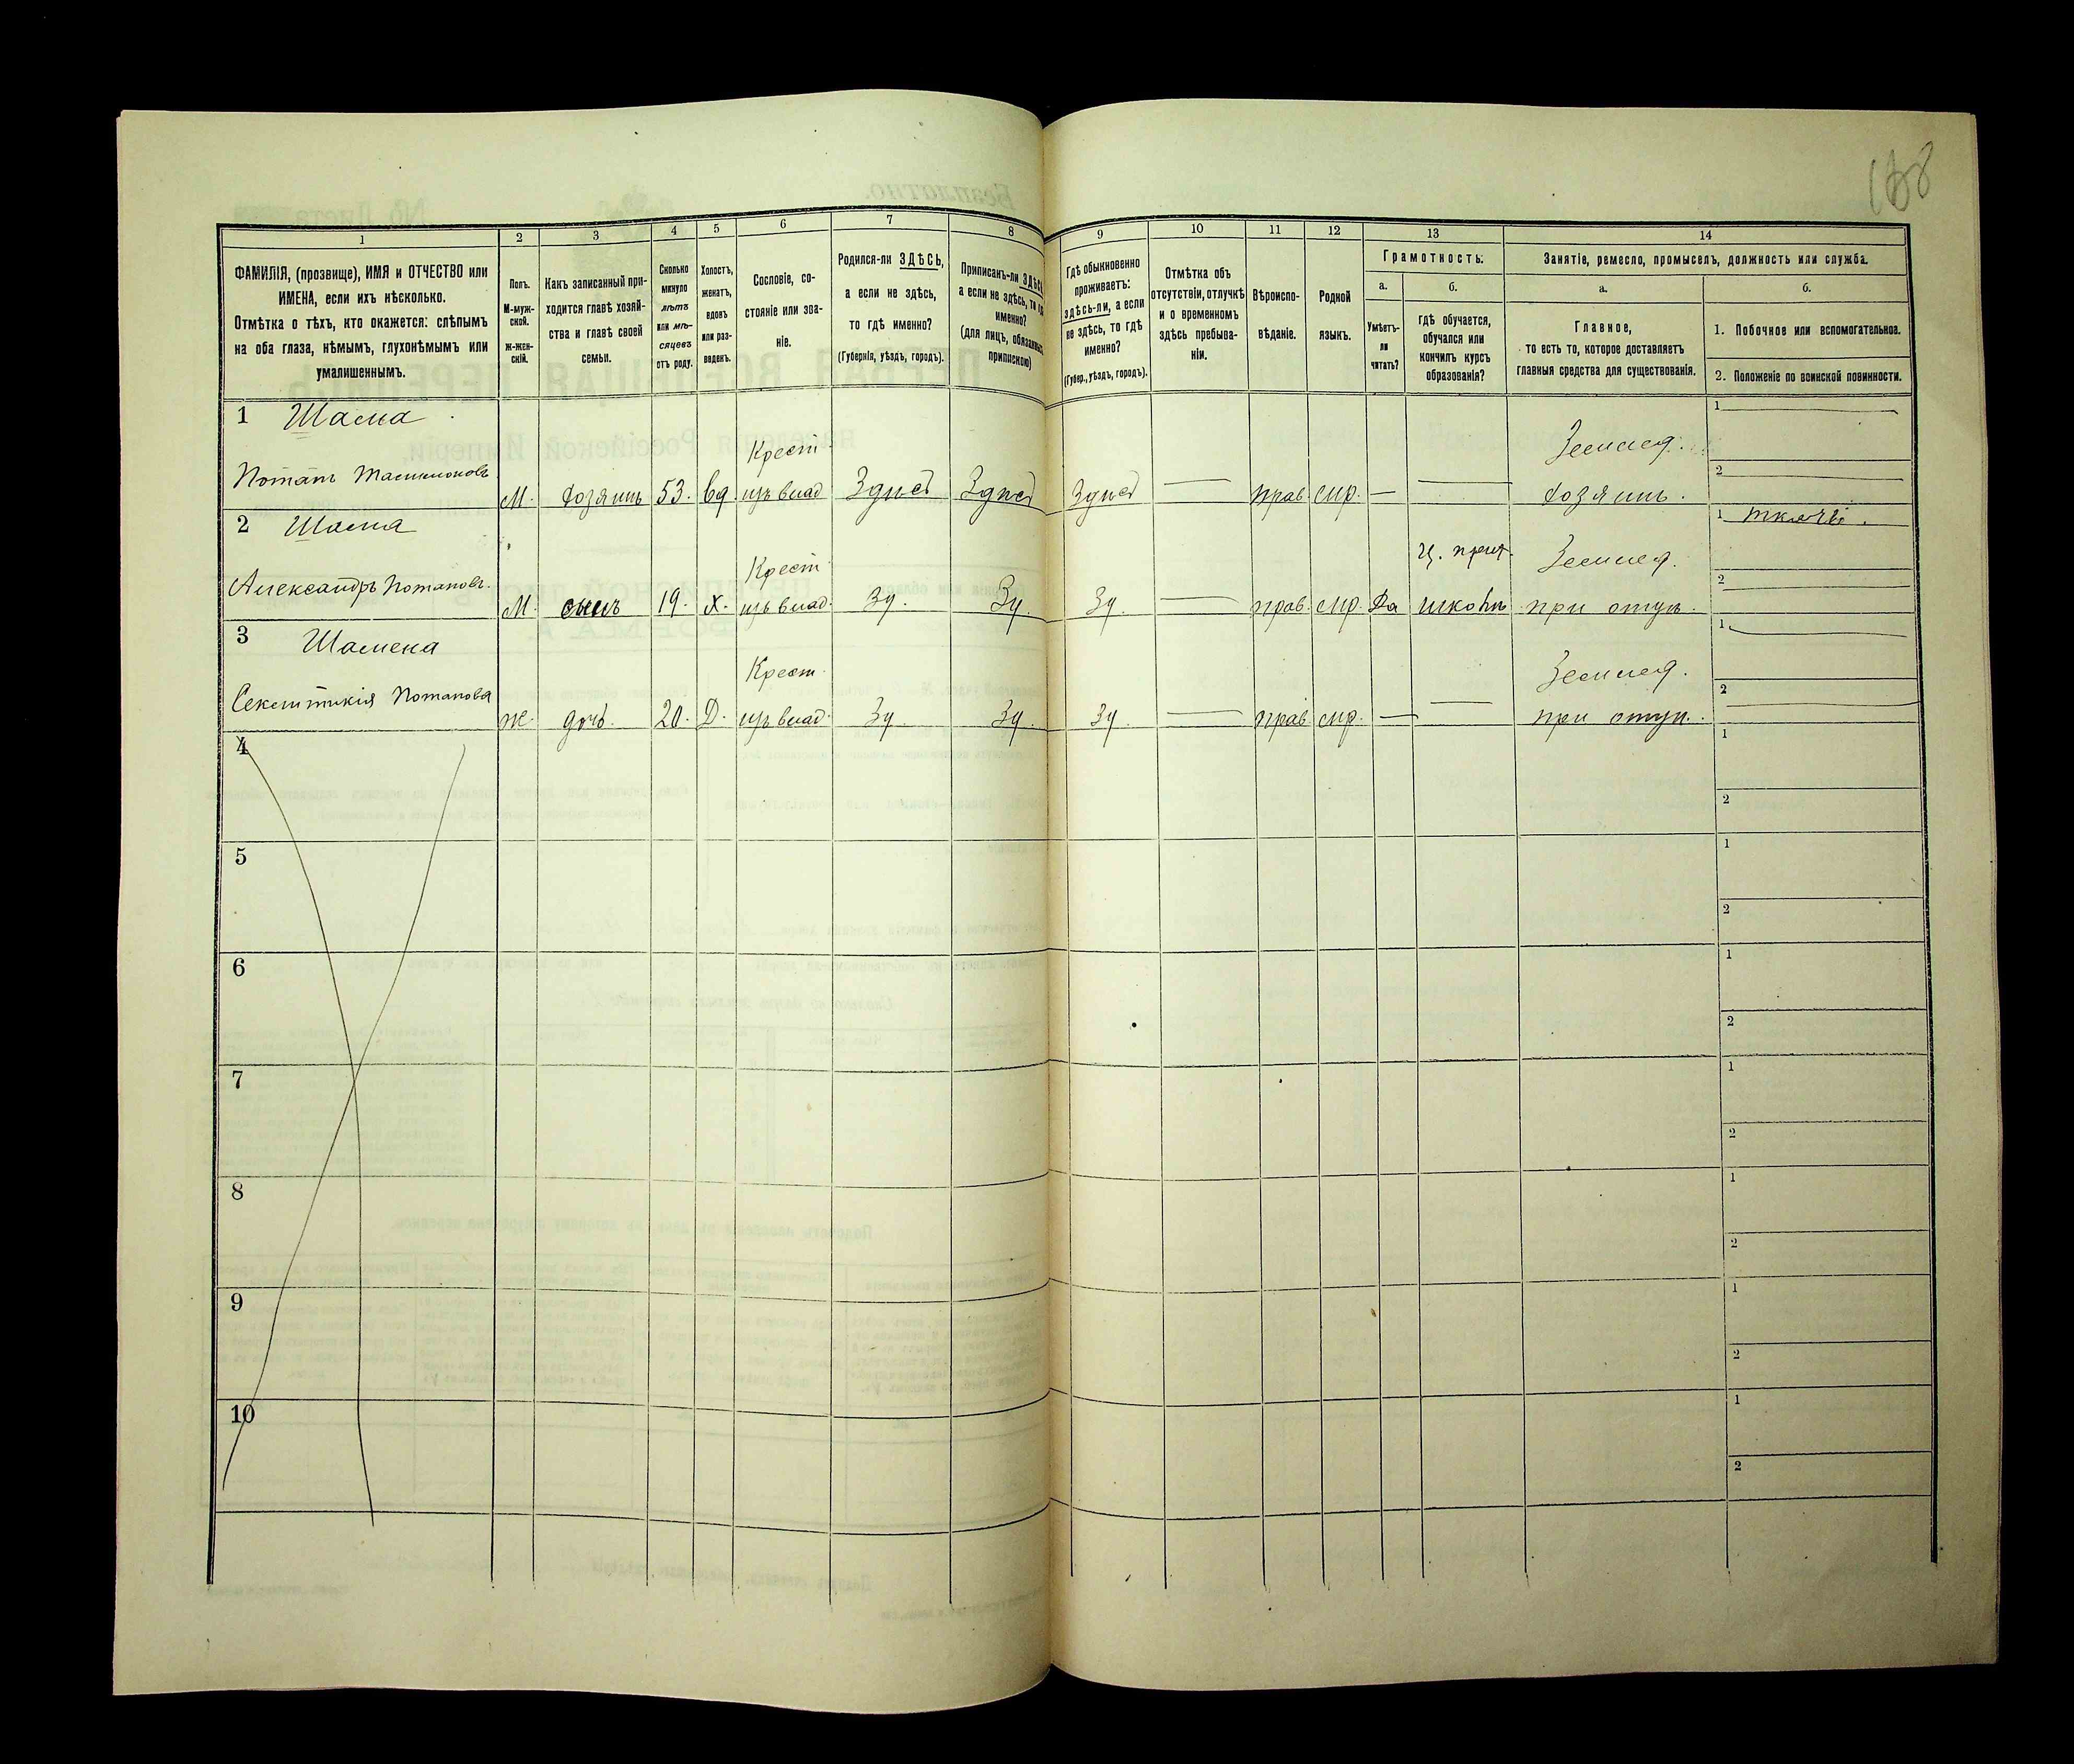 168
1
2
3
4
5
6
7
8
9
10
11
12
13
14
ФАМИЛІЯ, (прозвище), ИМЯ и ОТЧЕСТВО или
ИМЕНА, если ихъ нѣсколько.
Отмѣтка о тѣхъ, кто окажется: слѣпымъ
на оба глаза, нѣмымъ, глухонѣмымъ или
умалишеннымъ.
Полъ.
М-муж-
ской.
ж-жен-
скій.
Какъ записанный при-
ходится главѣ хозяй-
ства и главѣ своей
семьи.
Сколько
минуло
лѣтъ
или мѣ-
сяцевъ
отъ роду.
Холостъ,
женатъ,
вдовъ
или раз-
веденъ.
Сословіе, со-
стояніе или зва-
ніе.
Родился-ли ЗДѢСЬ,
а если не здѣсь,
то гдѣ именно?
(Губернія, уѣздъ, городъ).
Приписанъ-ли ЗДѢСЬ
а если не здѣсь, то гдѣ
именно?
(для лицъ, обязанныхъ
припискою)
Гдѣ обыкновенно
проживаетъ:
здѣсь-ли, а если
не здѣсь, то гдѣ
именно?
(Губер., уѣздъ, городъ).
Отмѣтка объ
отсутствіи, отлучкѣ
и о временномъ
здѣсь пребыва-
ніи.
Вѣроиспо-
вѣданіе.
Родной
языкъ.
Грамотность.
а.
Умѣетъ-
ли
читать?
б.
гдѣ обучается,
обучался или
кончилъ курсъ
образованія?
Занятіе, ремесло, промыселъ, должность или служба.
а.
Главное,
то есть то, которое доставляетъ
главныя средства для существованія.
б.
1. Побочное или вспомогательное.
2. Положеніе по воинской повинности.
1 Шама
Крест
Землед.
1
2
Потапъ
М. Хозяинъ 53. вд. изъ влад Здѣсь Здѣсь Здѣсь — прав. мр. — — Хозяинъ.
2 Шама
Крест
ц. прих. Землед.
1 ткачъ.
2
Александръ Потаповъ.
М. сынъ 19. х. изъ влад. Зд. Зд. Зд. — прав. мр. Да школѣ при отцѣ.
3 Шамека
Крест.
Землед.
1
2
Потапова
ж. дочь. 20. Д. изъ влад. Зд. Зд. Зд. — прав. мр. — — при отцѣ.
4
1
2
5
1
2
6
1
2
7
1
2
8
1
2
9
1
2
10
1
2